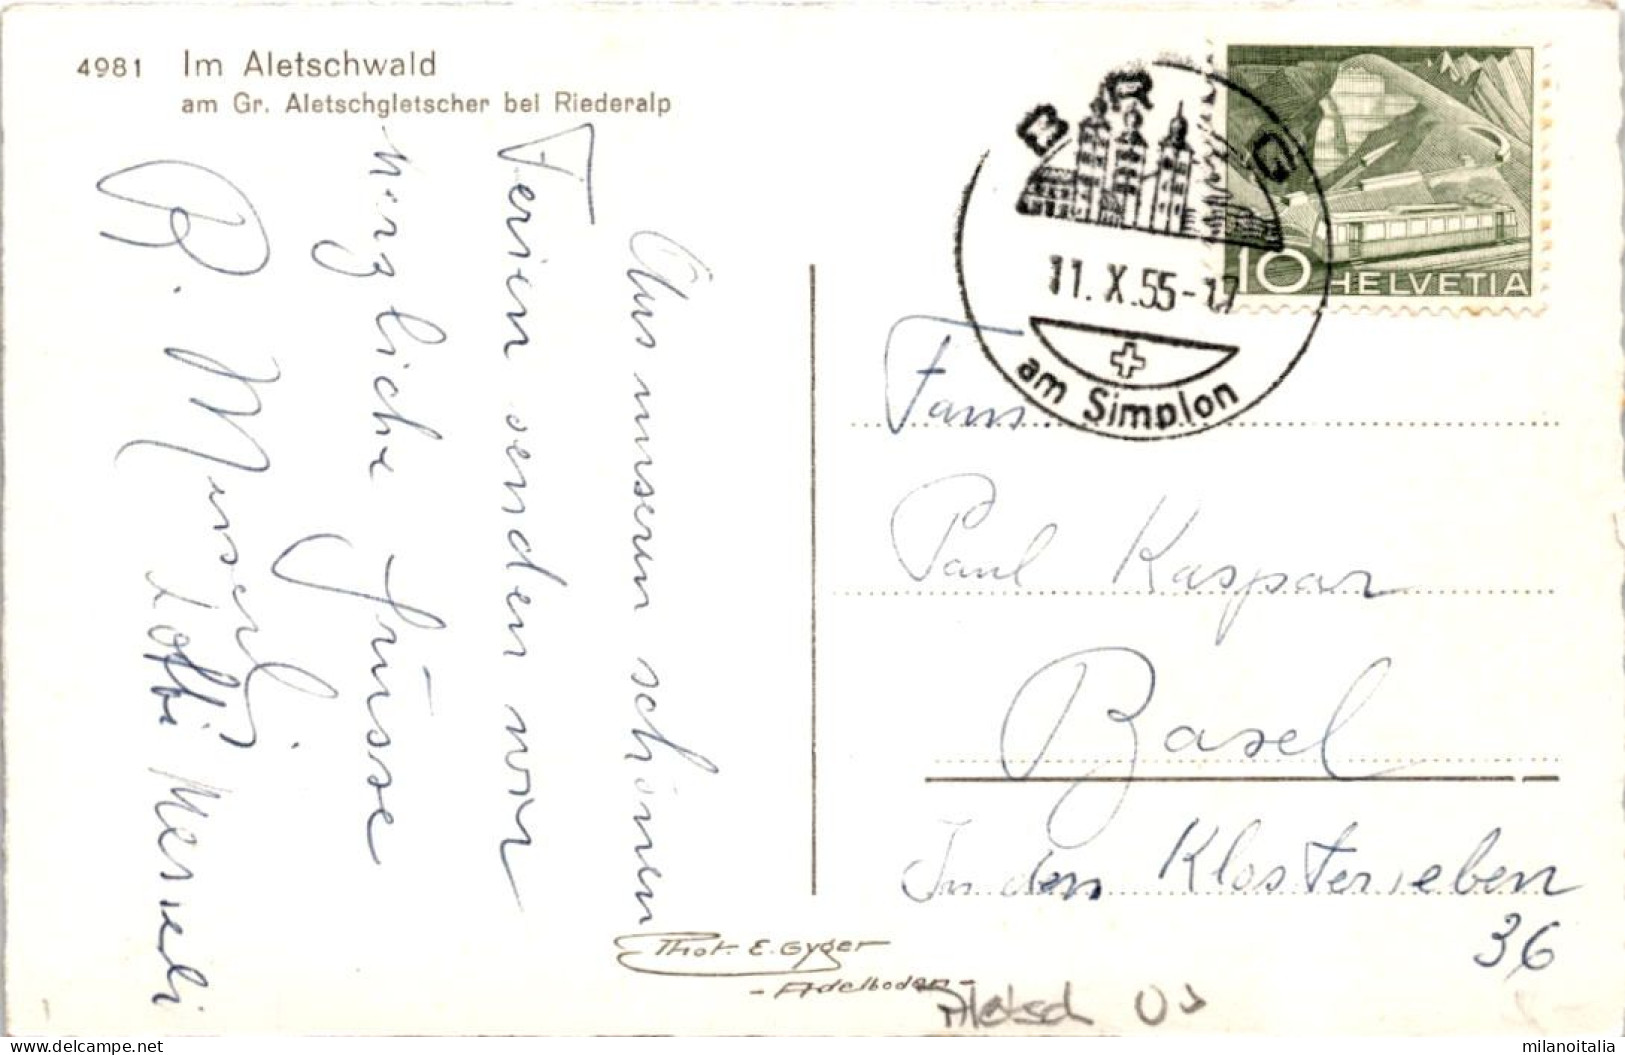 4981 Im Aletschwald
am Gr. Aletschgletscher bei Riederalp
Aus unseren schönen
Ferien senden wir
herzliche Grüsse
B.
Lotti
BRIG
11. X. 55-17
am Simplon
10 HELVETIA
Fam
Paul Kaspar
Basel
In den Klosterreben
36
Phot. E. Gyger
- Adelboden -
Aletsch
milanoitalia